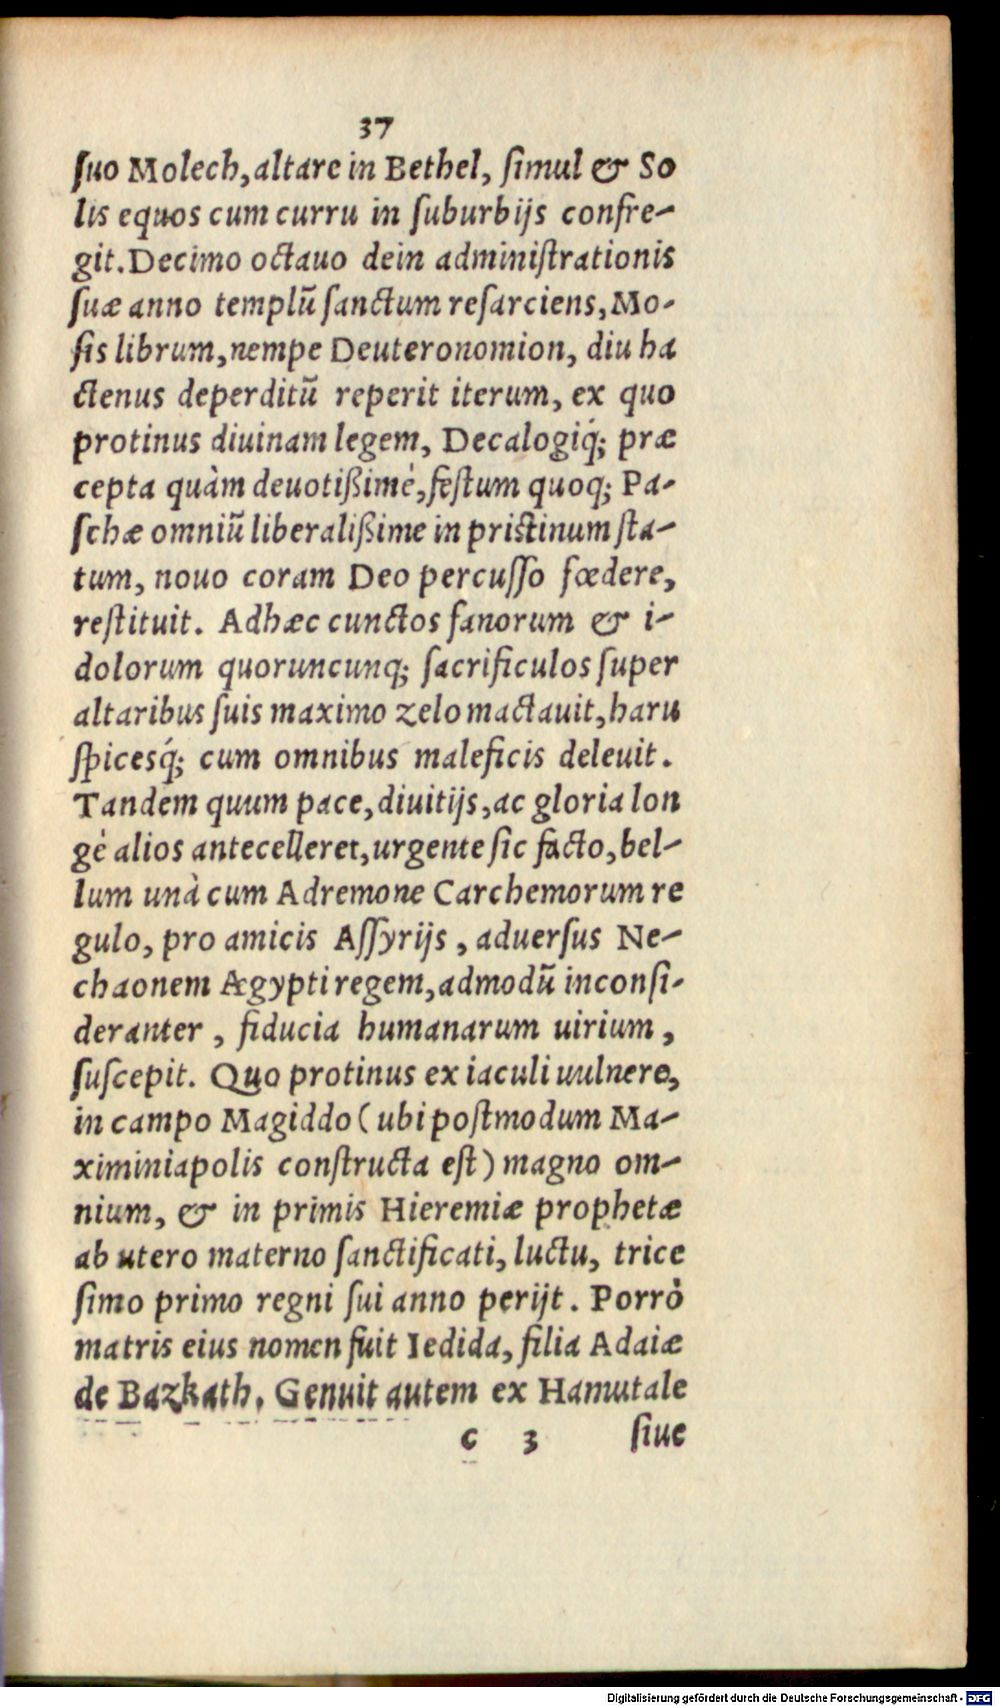 37
ſuo Molech, altare in Bethel, ſimul & So
lis equos cum curru in ſuburbijs confre-
git. Decimo octauo dein adminiſtrationis
ſuæ anno templū ſanctum reſarciens, Mo-
ſis librum, nempe Deuteronomion, diu ha
ctenus deperditū reperit iterum, ex quo
protinus diuinam legem, Decalogiq́; præ
cepta quàm deuotißimè, feſtum quoq; Pa-
ſchæ omniū liberalißime in priſtinum ſta-
tum, nouo coram Deo percuſſo fœdere,
reſtituit. Adhæc cunctos fanorum & i-
dolorum quoruncunq; ſacrificulos ſuper
altaribus ſuis maximo zelo mactauit, haru
ſpicesq́; cum omnibus maleficis deleuit.
Tandem quum pace, diuitijs, ac gloria lon
gè alios antecelleret, urgente ſic facto, bel-
lum unà cum Adremone Carchemorum re
gulo, pro amicis Aſſyrijs, aduerſus Ne-
chaonem Ægypti regem, admodū inconſi-
deranter, fiducia humanarum uirium,
ſuſcepit. Quo protinus ex iaculi uulnere,
in campo Magiddo (ubi poſtmodum Ma-
ximiniapolis conſtructa eſt) magno om-
nium, & in primis Hieremiæ prophetæ
ab utero materno ſanctificati, luctu, trice
ſimo primo regni ſui anno perijt. Porrò
matris eius nomen fuit Iedida, filia Adaiæ
de Bazkath. Genuit autem ex Hamutale
c 3 ſiue
Digitalisierung gefördert durch die Deutsche Forschungsgemeinschaft - DFG